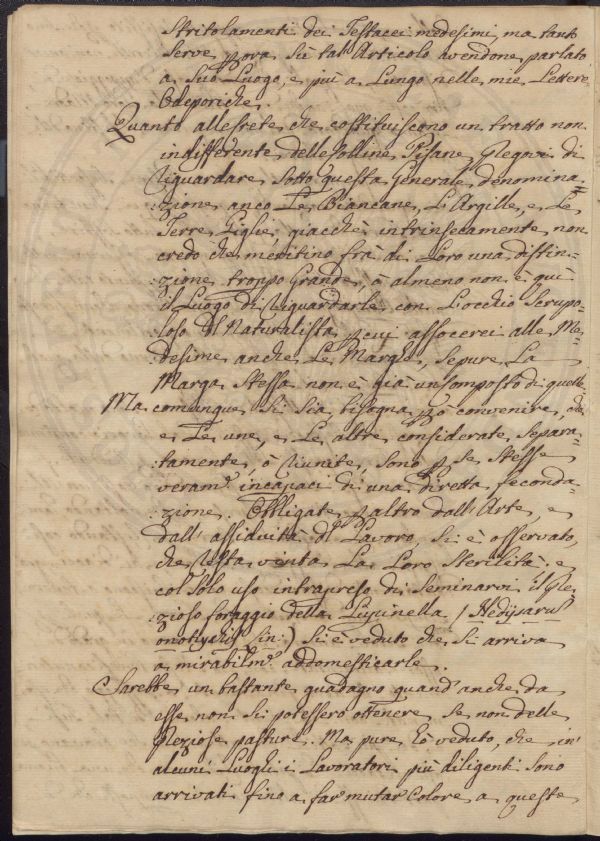 Stritolamenti dei Testacei medesimi, ma tanto
serve p ora sù tal'Articolo avendone parlato
a Suo Luogo, e più a Lungo nelle mie Lettere
Odeporiche.
Quanto alle Crete, che costituiscono un tratto non
indifferente delle Colline Pisane, Pregovi di
riguardare sotto questa generale denomina=
:zione anco Le Biancane, L'Argille, e Le
Terre Figlie, giacchè intrinsecamente non
credo che meritino frà di Loro una distin=
:zione troppo Grande, ò almeno non è quì
il Luogo di riguardarle con L'occhio Scrupo=
:loso del Naturalista, p cui assocerei alle Me=
desime anche Le Marghe, Sepure La
Marga Stessa non è già un Composto di quelle
Ma comunque Si Sia, bisogna p ò convenire, che
e Le une, e Le altre considerate Separa=
:tamente, ò riunite, Sono p Se Stesse
veram.e incapaci di una diretta feconda=
:zione. Obbligate p altro dall'Arte, e
dall'assiduità del Lavoro, Si è osservato,
che resta vinta La Loro Sterilità, e
col Solo uso intrapreso di Seminarvi il Pre=
:zioso foraggio della Lupinella / Hedysarum
onobrychis Lin:) Si è veduto che Si arriva
a mirabilm.e addomesticarle.
Sarebbe un bastante guadagno quand'anche da
esse non Si potessero ottenere Se non delle
Preziose pasture. Ma pure hò veduto, che in
alcuni Luoghi i Lavoratori più diligenti Sono
arrivati fino a far mutar Colore a queste